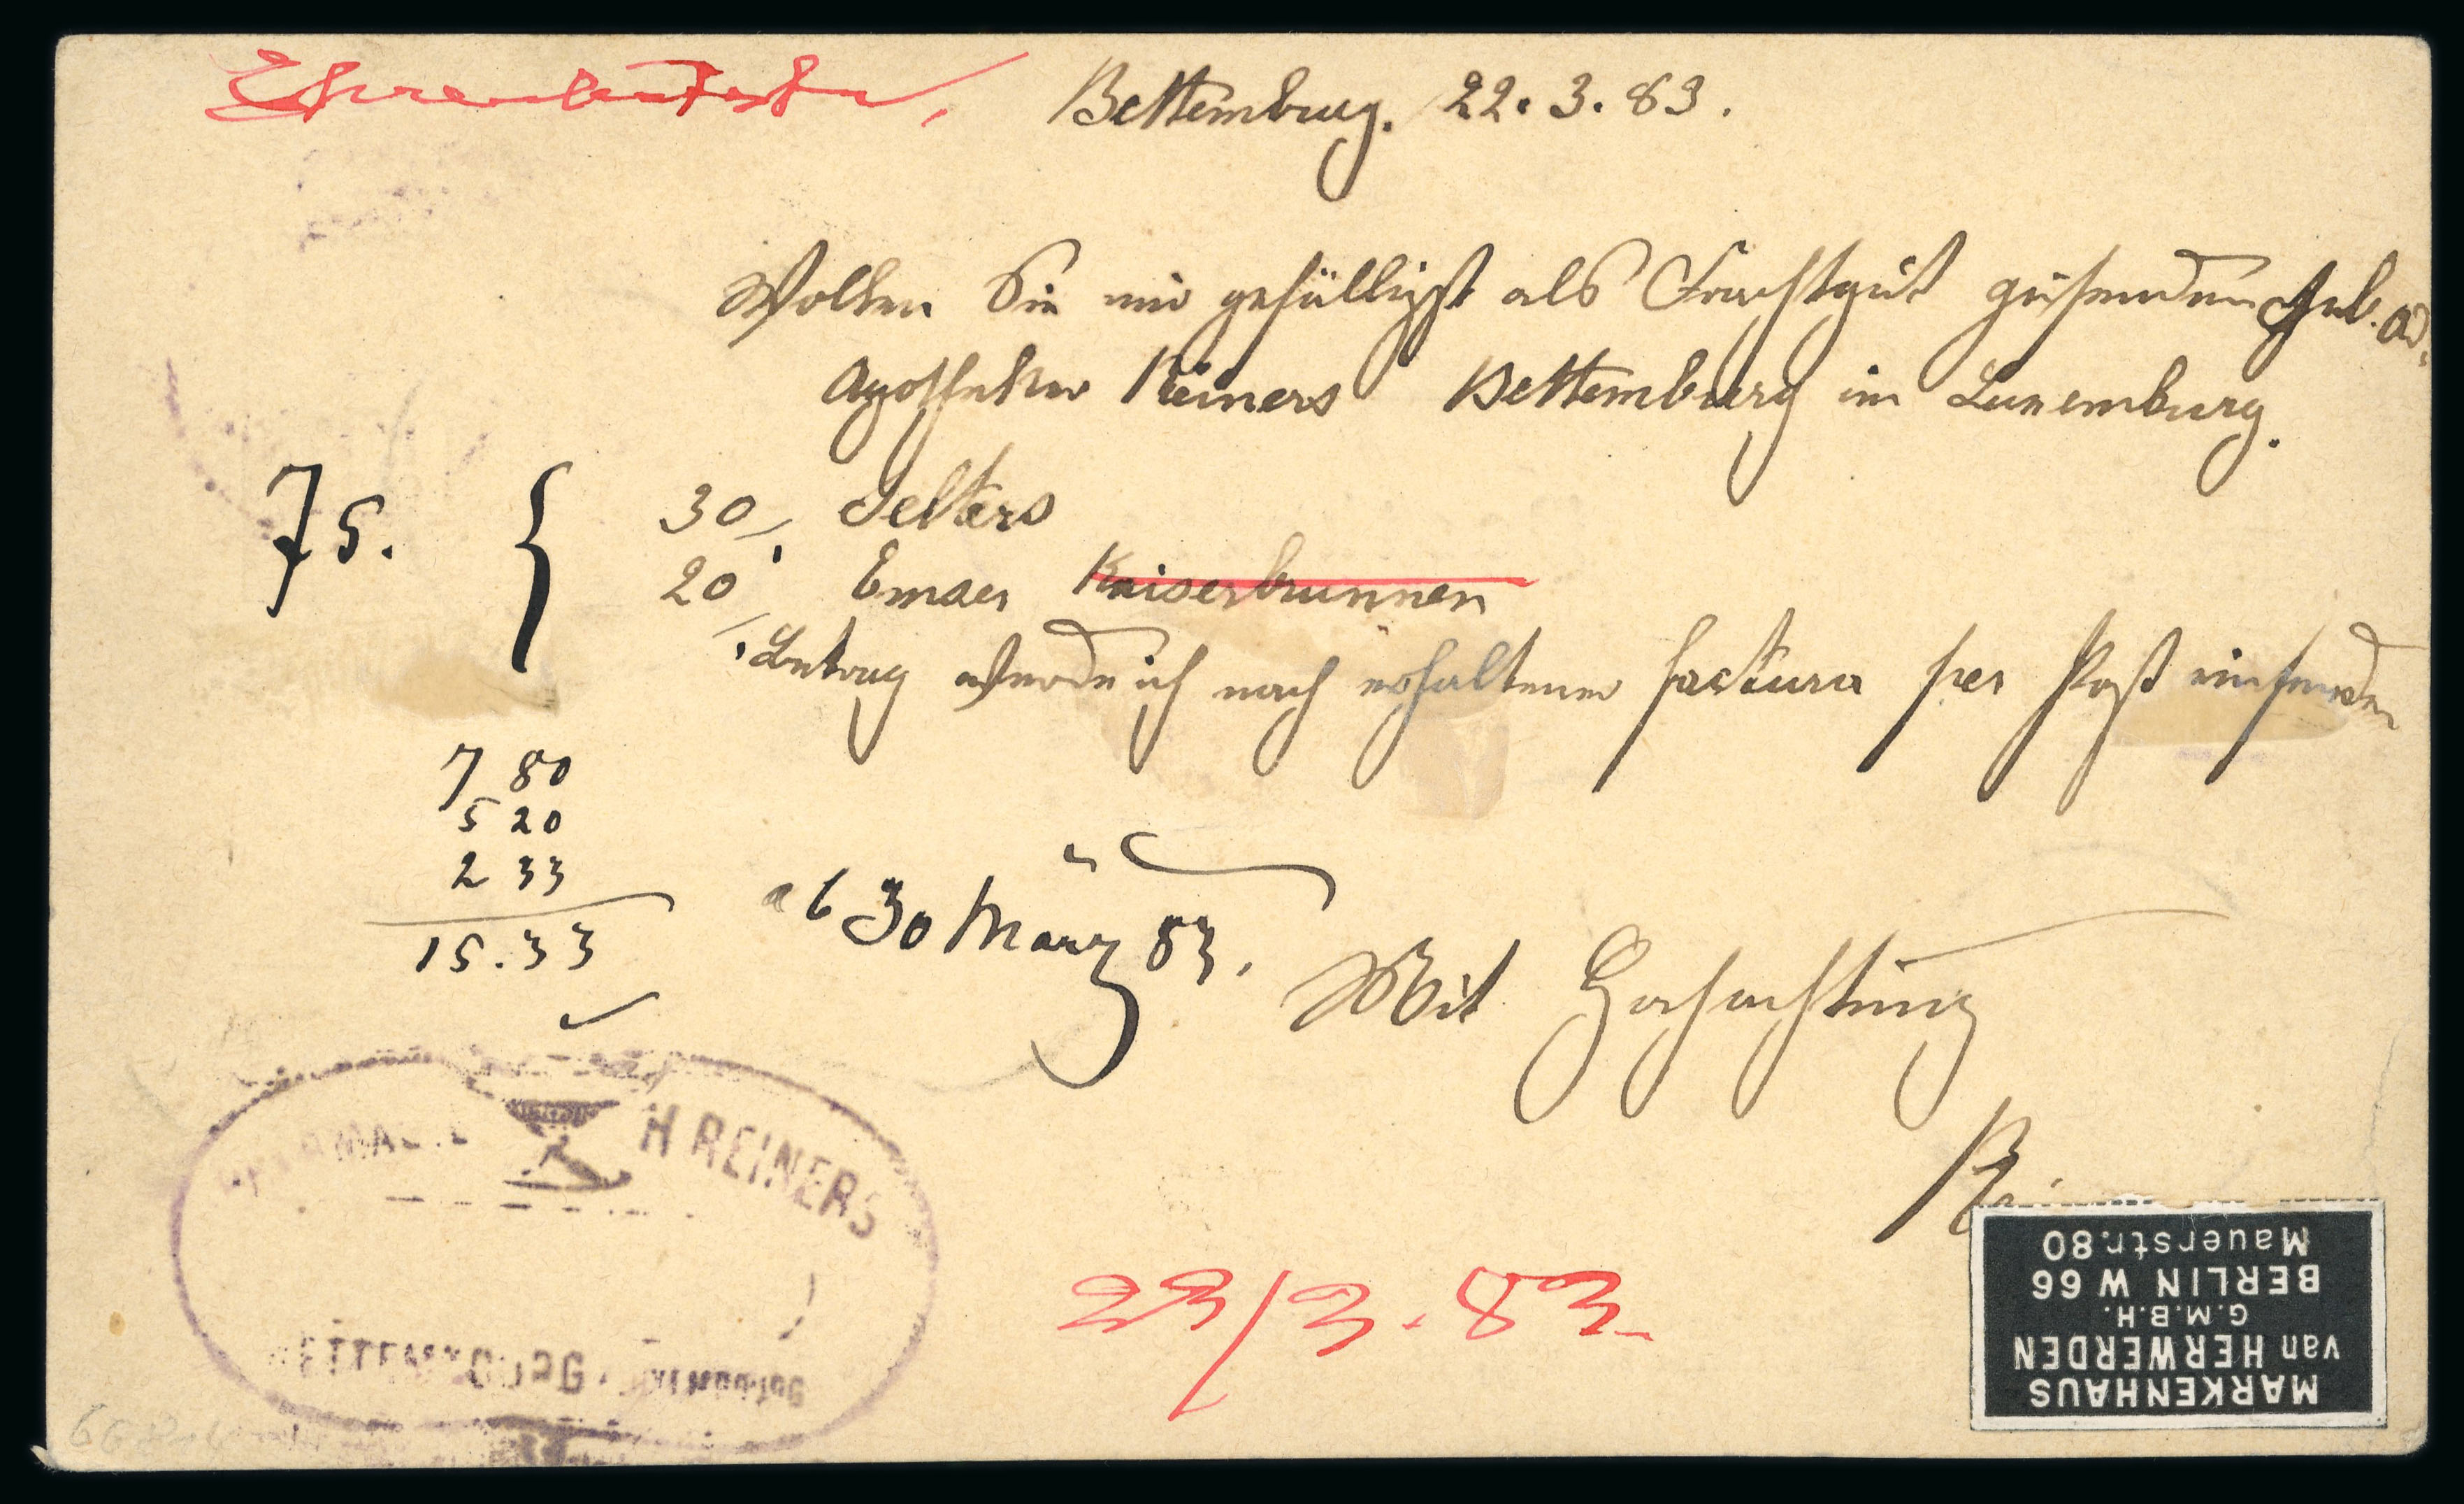 Bettemburg. 22. 3. 83.
Wollen Sie mir gefälligst als Frachtgut zusenden
Apotheker Reiners Bettemburg in Luxemburg.
75. { 30 Selters
20 Emser Kaiserbrunnen
Betrag werde ich nach erhaltener factura per Post einsenden
7 80
5 20
2 33
15.33
ab 30 März 83.
Mit Hochachtung
H REINERS
23/3.83
MARKENHAUS
van HERWERDEN
G.M.B.H.
BERLIN W 66
Mauerstr.80